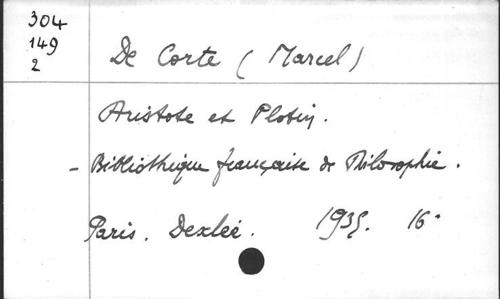 304
149
2
De Corte (Marcel)
Aristote et Plotin.
- Bibliothèque française de Philosophie.
Paris. Dexlée. 1935. 16°